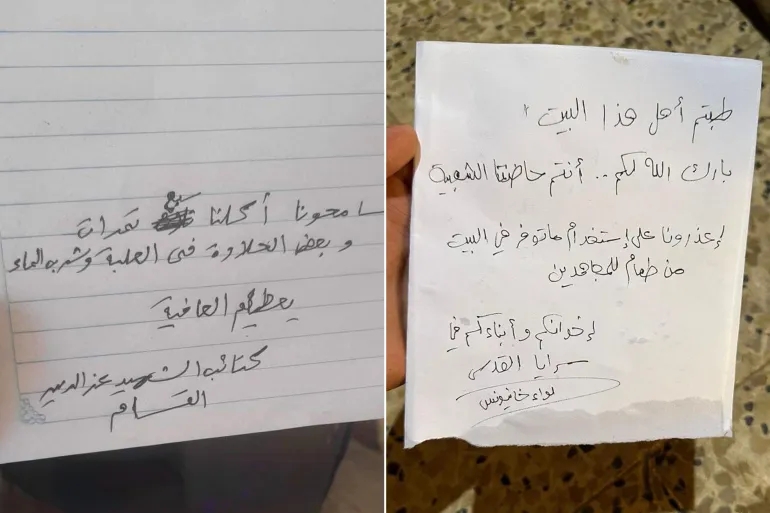 سامحونا أكلنا سبع تمرات
و بعض الحلاوة فى العلبة وشربه الماء
يعطيكم العافية
كتائب الشهيد عز الدين
القسام
طبتم أهل هذا البيت
بارك الله لكم.. أنتم حاضنتنا الشعبية
إعذرونا على إستخدام ماتوفر في البيت
من طعام للمجاهدين
إخوانكم و أبناءكم في
سرايا القدس
لواء خانيونس